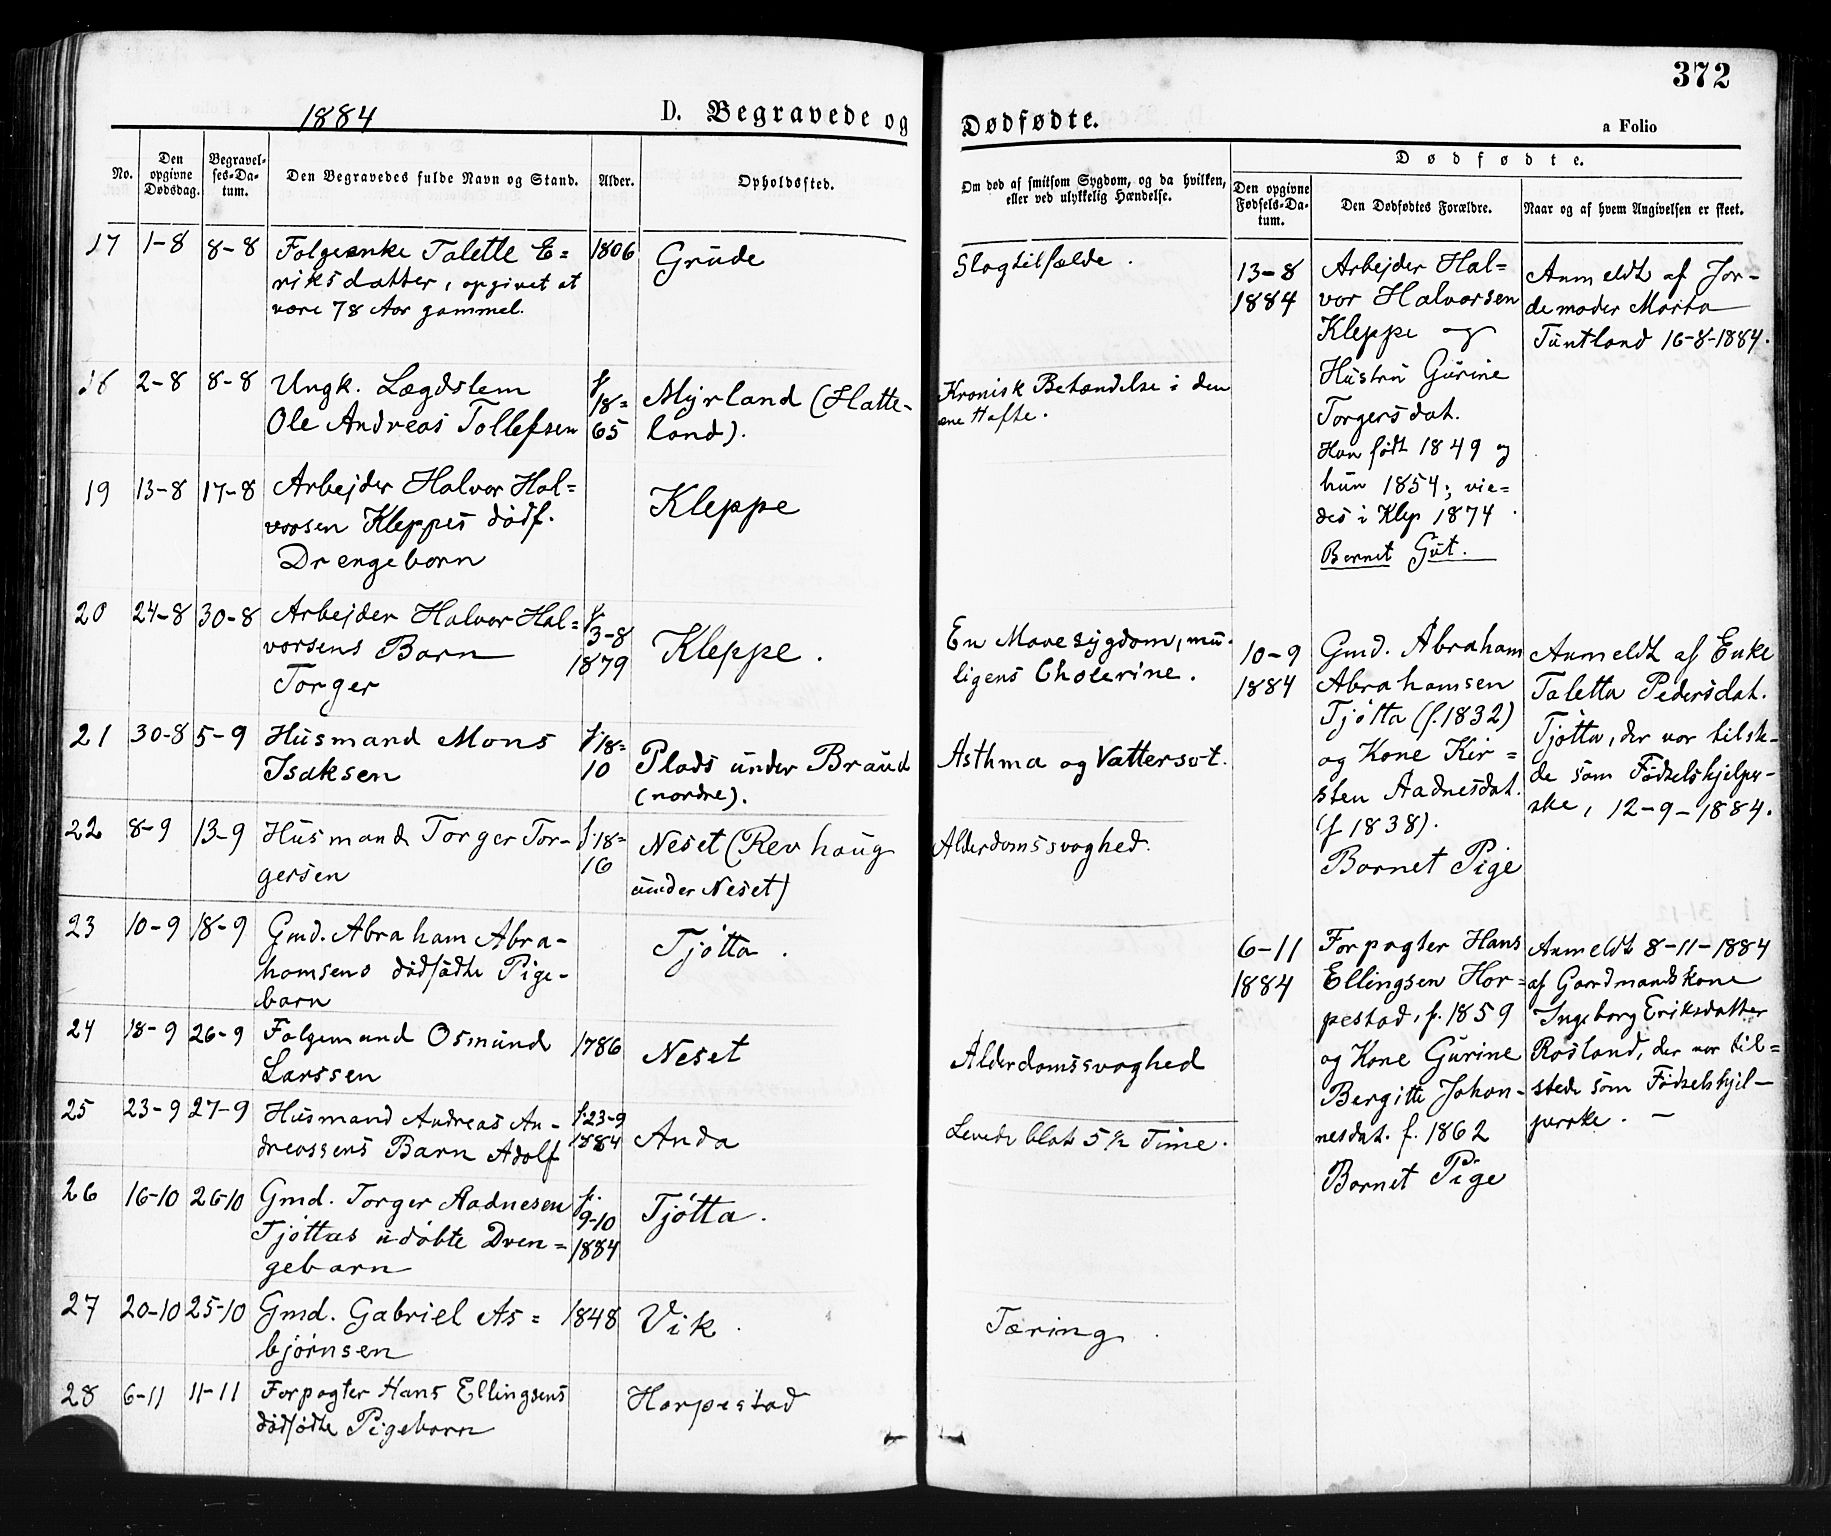 372
1884
D. Begravede og Dødfødte.
a Folio
No.
Den opgivne Dødsdag.
Begravel-
ses-Da-
tum.
Den Begravedes fulde Navn og Stand.
Alder.
Opholdssted.
Om død af smitsom Sygdom, og da hvilken,
eller ved ulykkelig Hændelse.
Dødfødte.
Den opgivne
Fødsels-Da-
tum.
Den Dødfødtes Forældre.
Naar og af hvem Angivelsen er skeet.
17 1-8 8-8 Folgeenke Talette E= 1806 Grude Slagtilfælde.
riksdatter, opgivet at
være 78 Aar gammel.
18 2-8 8-8 Ungk. Lægdslem f. Myrland (Hatte- Kronisk Betændelse i den
Ole Andreas Tollefsen 18=65 land). ene Hofte.
19 13-8 17-8 Arbejder Halvor Hal= Kleppe
vorsen Kleppes dødf.
Drengebarn
20 24-8 30-8 Arbejder Halvor Hal= f. 3-8 Kleppe. En Mavesygdom, mu-
vorsens Barn 1879 ligens Cholerine.
Torger
21 30-8 5-9 Husmand Mons f. 18= Plads under Braud Asthma og Vattersot.
Isaksen 10 (nordre).
22 8-9 13-9 Husmand Torger Tor- f. 18= Neset (Revhaug Alderdomssvaghed.
gersen 16 under Neset)
23 10-9 18-9 Gmd. Abraham Abra- Tjøtta.
hamsens dødfødte Pige-
barn
24 18-9 26-9 Folgemand Osmund 1786 Neset Alderdomssvaghed
Larssen
25 23-9 27-9 Husmand Andreas An- f. 23-9 Anda Levede blot 5 ½ Time.
dreassens Barn Adolf 1884
26 16-10 26-10 Gmd. Torger Aadnesen f. 9-10 Tjøtta.
Tjøttas udøbte Dren= 1884
gebarn
27 20-10 25-10 Gmd. Gabriel As= 1848 Vik Tæring.
bjørnsen
28 6-11 11-11 Forpagter Hans Ellingsens Horpestad
dødfødte Pigebarn
13-8
1884
Arbejder Hal=
vor Halvorsen
Kleppe og
Hustru Gurine
Torgersdat.
Han født 1849 og
hun 1854; vie=
des i Klep 1874.
Barnet Gut.
Anmeldt af Jor-
demoder Marta
Tuntland 16-8-1884.
10-9
1884
Gmd. Abraham
Abrahamsen
Tjøtta (f. 1832)
og Kone Kir=
sten Aadnesdat.
(f 1838).
Barnet Pige
Anmeldt af Enke
Taletta Pedersdat.
Tjøtta, der var tilste-
de som Fødselshjelper-
ske, 12-9-1884.
6-11
1884
Forpagter Hans
Ellingsen Hor=
pestad, f. 1859
og Kone Gurine
Bergitte Johan-
nesdat. f. 1862
Barnet Pige
Anmeldt 8-11-1884
af Gaardmandskone
Ingeborg Eriksdatter
Rosland, der var til=
stede som Fødselshjel-
perske. —